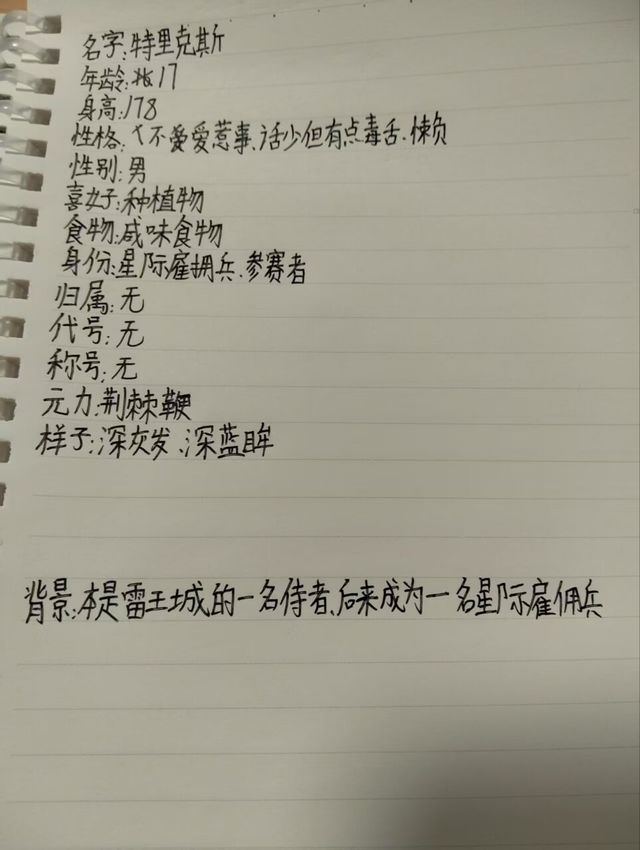 名字:特里克斯
年龄:17
身高:178
性格:不爱爱惹事、话少但有点毒舌、懒
性别:男
喜好:种植物
食物:咸味食物
身份:星际雇拥兵、参赛者
归属:无
代号:无
称号:无
元力:荆棘鞭
样子:深灰发、深蓝眸
背景:本是雷王城的一名侍者、后来成为一名星际雇佣兵